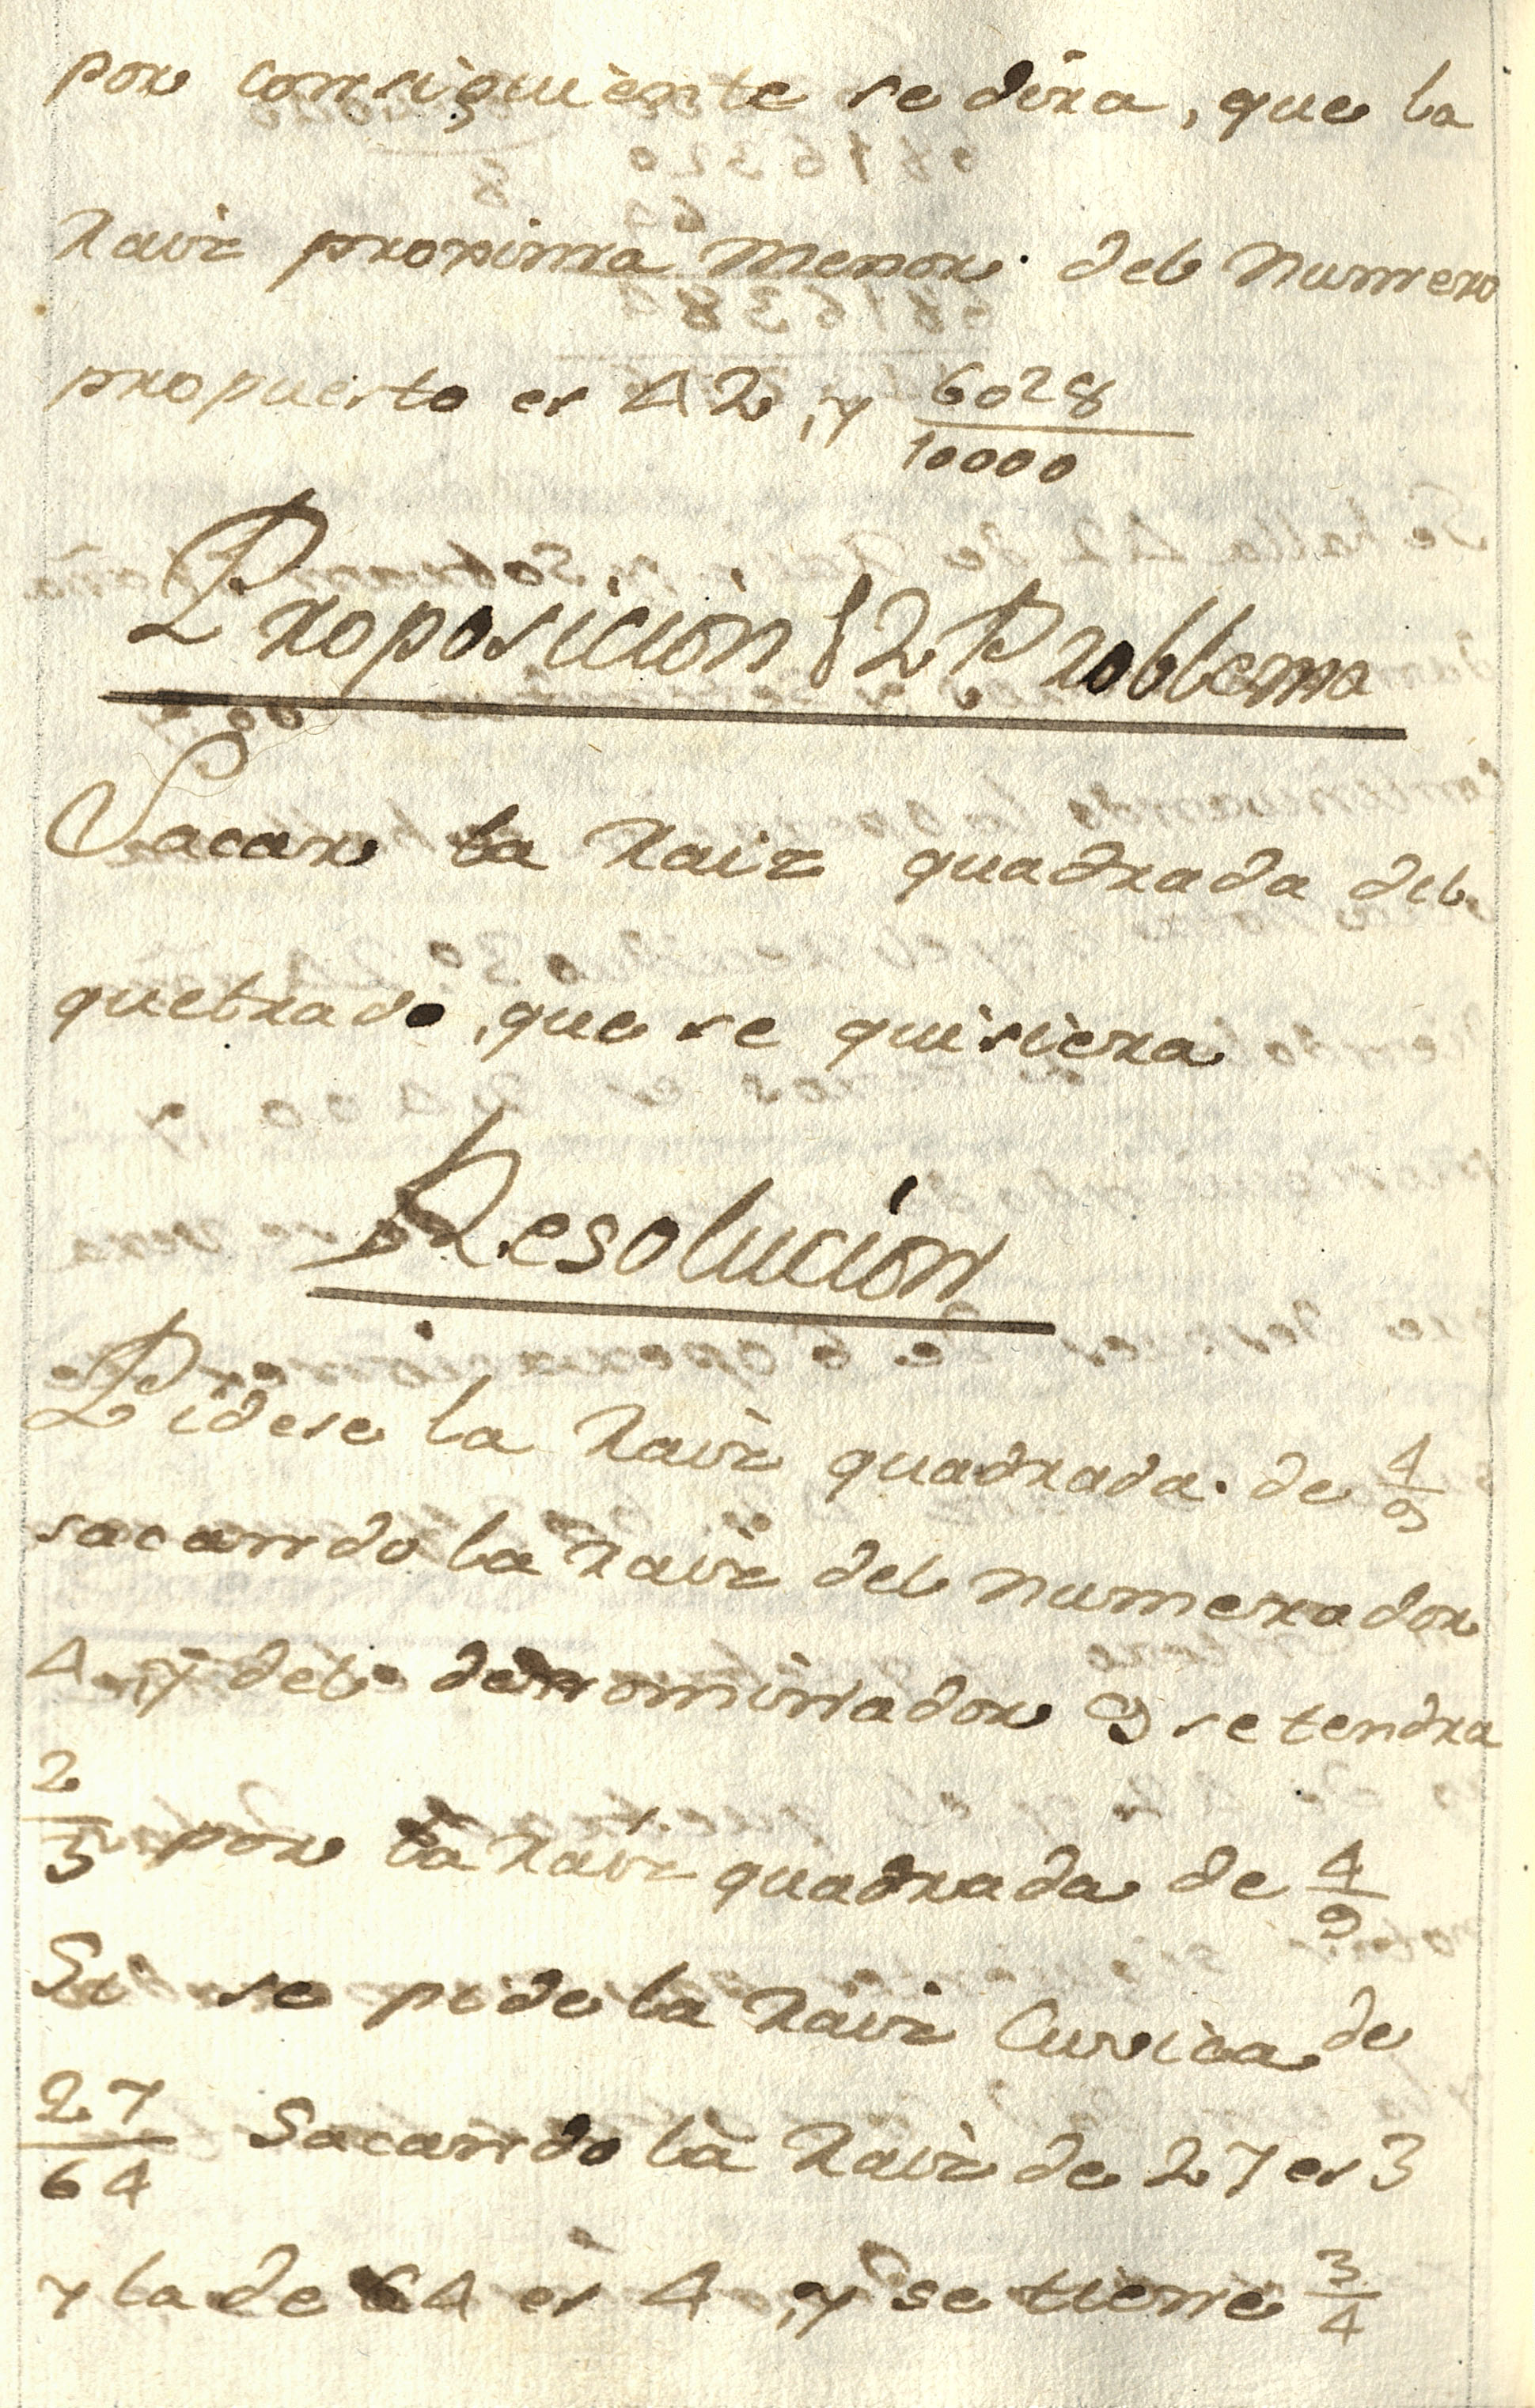 por consiguiente se dira, que la
raiz proxima menor del numero
propuesto es 42, y 6028/10000
Proposicion 52 Problema
Sacar la raiz quadrada del
quebrado, que se quisiera
Resolucion
Pidese la raiz quadrada de 4/9
sacando la raiz del numerador
4 y del denominador 9 se tendra
2/3 por la raiz quadrada de 4/9
Si se pide la raiz Cuvica de
27/64 Sacando la raiz de 27 es 3
y la de 64 es 4, y se tiene 3/4